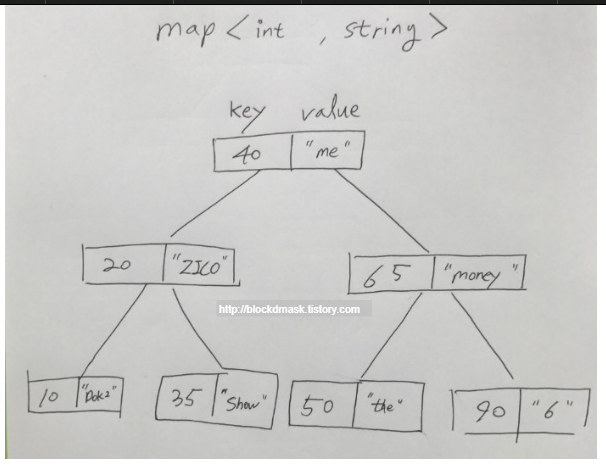 map < int , string >
key value
40 "me"
20 "ZICO"
65 "money"
http://blockdmask.tistory.com
10 "Dok2"
35 "Show"
50 "the"
90 "6"